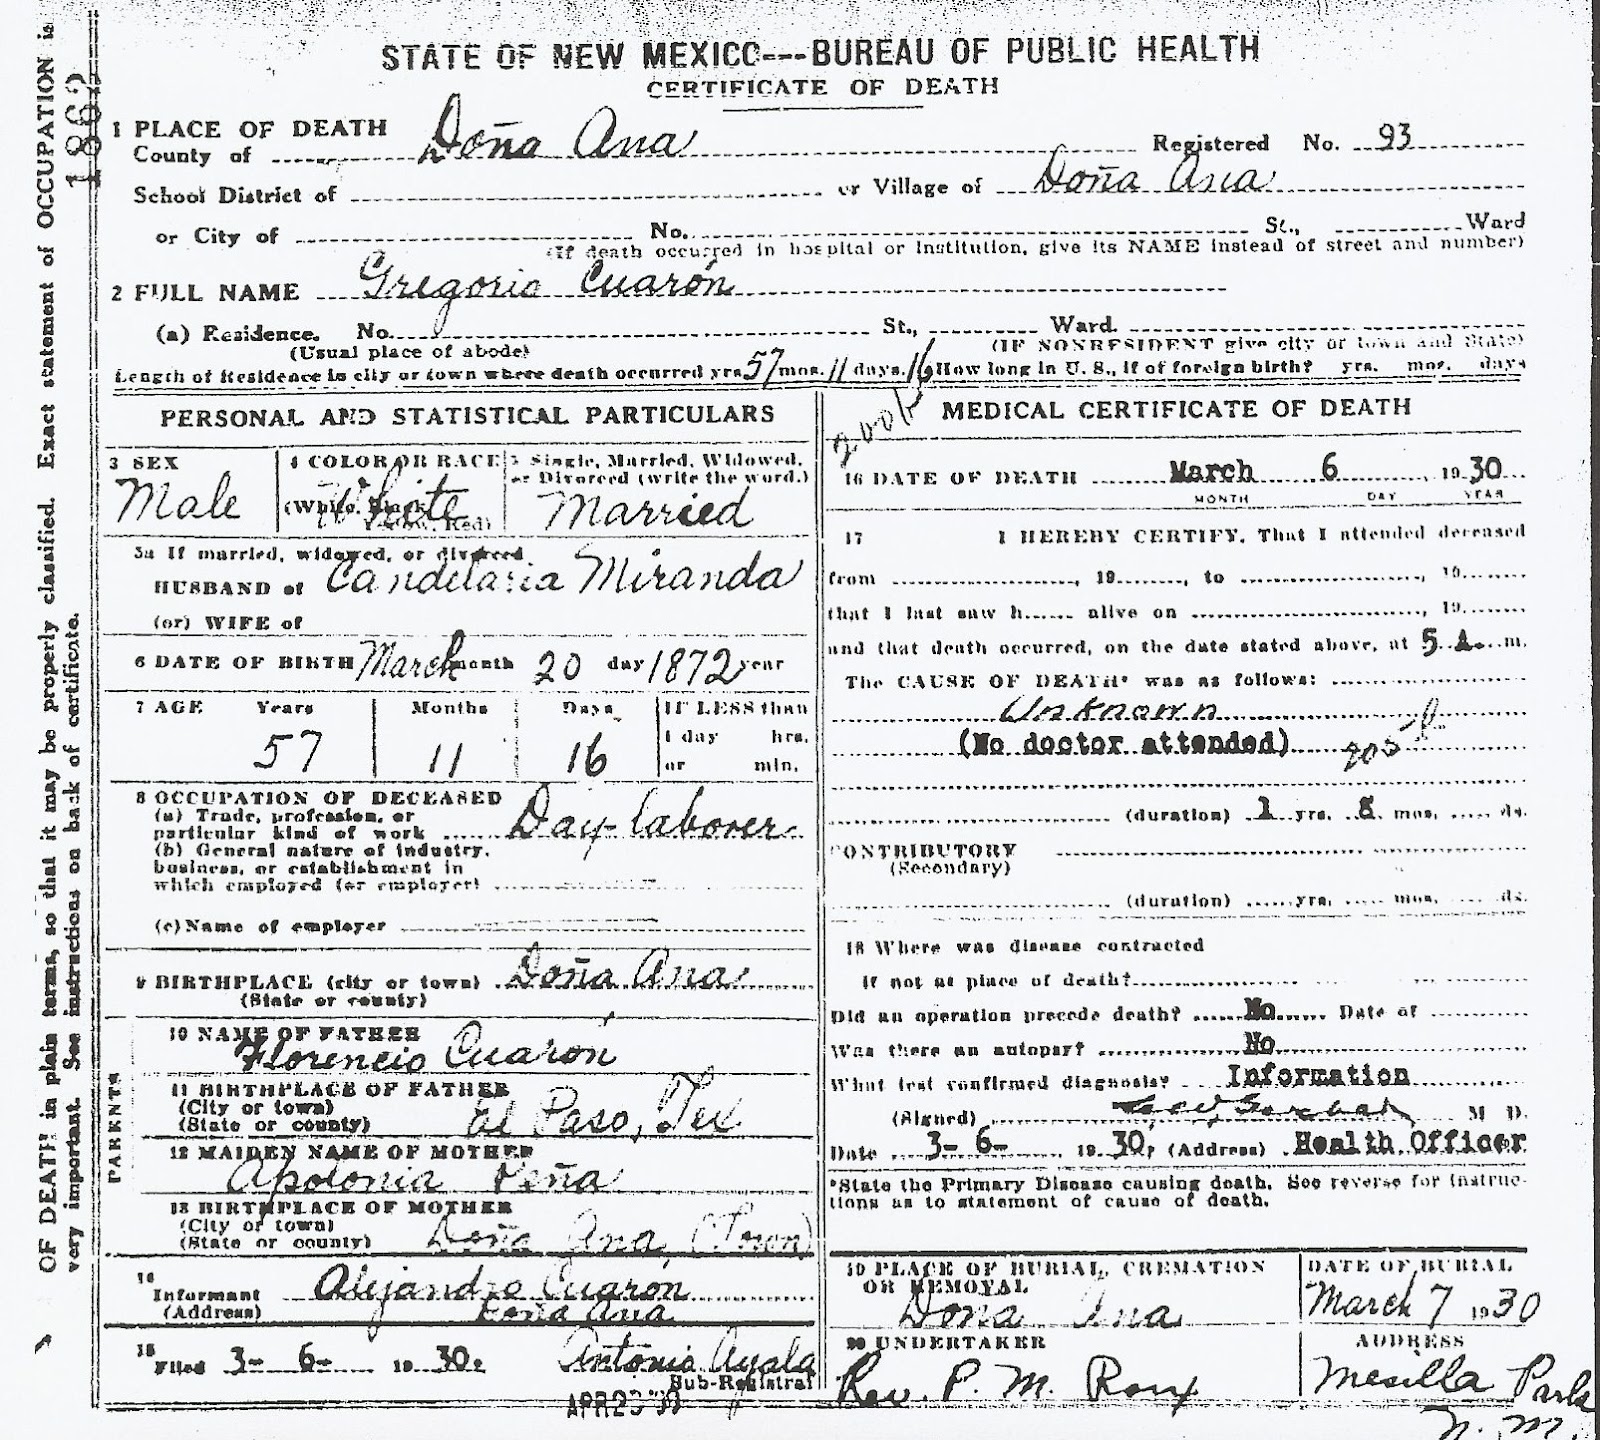 STATE OF NEW MEXICO---BUREAU OF PUBLIC HEALTH
CERTIFICATE OF DEATH
1 PLACE OF DEATH
County of Doña Ana Registered No. 93
School District of or Village of Doña Ana
or City of No. St., Ward
(If death occurred in hospital or institution, give its NAME instead of street and number)
2 FULL NAME Gregorio Cuarón
(a) Residence. No. St., Ward.
(Usual place of abode) (IF NONRESIDENT give city or town and State)
Length of Residence in city or town where death occurred yrs 57 mos. 11 days. 16 How long in U. S., if of foreign birth? yrs. mos. days
PERSONAL AND STATISTICAL PARTICULARS
3 SEX
Male
4 COLOR OR RACE
(White, Black, Yellow, Red)
White
5 Single, Married, Widowed,
or Divorced (write the word.)
Married
5a If married, widowed, or divorced
HUSBAND of Candelaria Miranda
(or) WIFE of
6 DATE OF BIRTH March month 20 day 1872 year
7 AGE Years Months Days If LESS than
1 day hrs.
57 11 16 or min.
8 OCCUPATION OF DECEASED
(a) Trade, profession, or
particular kind of work Day-laborer
(b) General nature of industry,
business, or establishment in
which employed (or employer)
(c) Name of employer
9 BIRTHPLACE (city or town) Doña Ana
(State or county)
PARENTS
10 NAME OF FATHER
Florencio Cuarón
11 BIRTHPLACE OF FATHER
(City or town)
(State or county) El Paso, Tex
12 MAIDEN NAME OF MOTHER
Apolonia Peña
13 BIRTHPLACE OF MOTHER
(City or town)
(State or county) Doña Ana, (Town)
14
Informant Alejandro Cuarón
(Address) Doña Ana
15
Filed 3- 6- 1930. Antonio Ayala
Sub-Registrar
APR 23 '30
MEDICAL CERTIFICATE OF DEATH
16 DATE OF DEATH March 6, 1930
MONTH DAY YEAR
17 I HEREBY CERTIFY, That I attended deceased
from , 19 , to , 19
that I last saw h alive on , 19
and that death occurred, on the date stated above, at 5 A. m.
The CAUSE OF DEATH* was as follows:
Unknown
(No doctor attended) 205
(duration) 1 yrs. 8 mos. ds.
CONTRIBUTORY
(Secondary)
(duration) yrs. mos. ds.
18 Where was disease contracted
if not at place of death?
Did an operation precede death? No Date of
Was there an autopsy? No
What test confirmed diagnosis? Information
(Signed) M D.
Date 3- 6- 1930, (Address) Health Officer
*State the Primary Disease causing death. See reverse for instruc-
tions as to statement of cause of death.
19 PLACE OF BURIAL, CREMATION
OR REMOVAL
Doña Ana
DATE OF BURIAL
March 7 1930
20 UNDERTAKER
Rev. P. M. Roux
ADDRESS
Mesilla Park
N. M.
OF DEATH in plain terms, so that it may be properly classified. Exact statement of OCCUPATION is
very important. See instructions on back of certificate.
1862